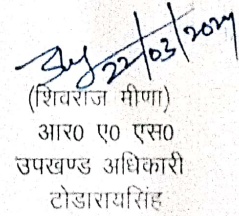 22/03/2024
(शिवराज मीणा)
आर० ए० एस०
उपखण्ड अधिकारी
टोडारायसिंह